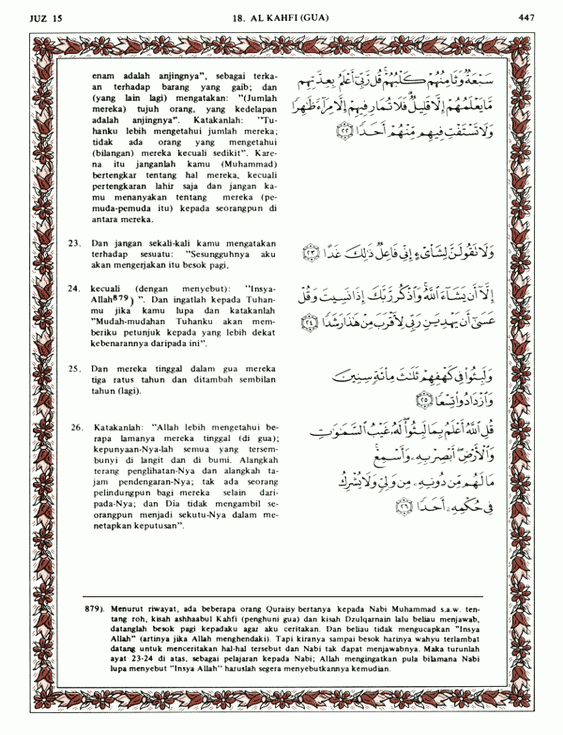 JUZ 15
18. AL KAHFI (GUA)
447
enam adalah anjingnya", sebagai terka-
an terhadap barang yang gaib; dan
(yang lain lagi) mengatakan: "(Jumlah
mereka) tujuh orang, yang kedelapan
adalah anjingnya". Katakanlah: "Tu-
hanku lebih mengetahui jumlah mereka;
tidak ada orang yang mengetahui
(bilangan) mereka kecuali sedikit". Kare-
na itu janganlah kamu (Muhammad)
bertengkar tentang hal mereka, kecuali
pertengkaran lahir saja dan jangan ka-
mu menanyakan tentang mereka (pe-
muda-pemuda itu) kepada seorangpun di
antara mereka.
سَبْعَةٌ وَثَامِنُهُمْ كَلْبُهُمْ ۚ قُلْ رَبِّي أَعْلَمُ بِعِدَّتِهِمْ
مَا يَعْلَمُهُمْ إِلَّا قَلِيلٌ ۗ فَلَا تُمَارِ فِيهِمْ إِلَّا مِرَاءً ظَاهِرًا
وَلَا تَسْتَفْتِ فِيهِمْ مِنْهُمْ أَحَدًا ﴿٢٢﴾
23. Dan jangan sekali-kali kamu mengatakan
terhadap sesuatu: "Sesungguhnya aku
akan mengerjakan itu besok pagi,
وَلَا تَقُولَنَّ لِشَايْءٍ إِنِّي فَاعِلٌ ذَٰلِكَ غَدًا ﴿٢٣﴾
24. kecuali (dengan menyebut): "Insya-
Allah879) ". Dan ingatlah kepada Tuhan-
mu jika kamu lupa dan katakanlah
"Mudah-mudahan Tuhanku akan mem-
beriku petunjuk kepada yang lebih dekat
kebenarannya daripada ini".
إِلَّا أَنْ يَشَاءَ اللَّهُ ۚ وَاذْكُرْ رَبَّكَ إِذَا نَسِيتَ وَقُلْ
عَسَىٰ أَنْ يَهْدِيَنِ رَبِّي لِأَقْرَبَ مِنْ هَٰذَا رَشَدًا ﴿٢٤﴾
25. Dan mereka tinggal dalam gua mereka
tiga ratus tahun dan ditambah sembilan
tahun (lagi).
وَلَبِثُوا فِي كَهْفِهِمْ ثَلَاثَ مِائَةٍ سِنِينَ
وَازْدَادُوا تِسْعًا ﴿٢٥﴾
26. Katakanlah: "Allah lebih mengetahui be-
rapa lamanya mereka tinggal (di gua);
kepunyaan-Nya-lah semua yang tersem-
bunyi di langit dan di bumi. Alangkah
terang penglihatan-Nya dan alangkah ta-
jam pendengaran-Nya; tak ada seorang
pelindungpun bagi mereka selain dari-
pada-Nya; dan Dia tidak mengambil se-
orangpun menjadi sekutu-Nya dalam me-
netapkan keputusan".
قُلِ اللَّهُ أَعْلَمُ بِمَا لَبِثُوا ۖ لَهُ غَيْبُ السَّمَاوَاتِ
وَالْأَرْضِ ۖ أَبْصِرْ بِهِ وَأَسْمِعْ ۚ
مَا لَهُمْ مِنْ دُونِهِ مِنْ وَلِيٍّ وَلَا يُشْرِكُ
فِي حُكْمِهِ أَحَدًا ﴿٢٦﴾
879). Menurut riwayat, ada beberapa orang Quraisy bertanya kepada Nabi Muhammad s.a.w. ten-
tang roh, kisah ashhaabul Kahfi (penghuni gua) dan kisah Dzulqarnain lalu beliau menjawab,
datanglah besok pagi kepadaku agar aku ceritakan. Dan beliau tidak mengucapkan "Insya
Allah" (artinya jika Allah menghendaki). Tapi kiranya sampai besok harinya wahyu terlambat
datang untuk menceritakan hal-hal tersebut dan Nabi tak dapat menjawabnya. Maka turunlah
ayat 23-24 di atas, sebagai pelajaran kepada Nabi; Allah mengingatkan pula bilamana Nabi
lupa menyebut "Insya Allah" haruslah segera menyebutkannya kemudian.